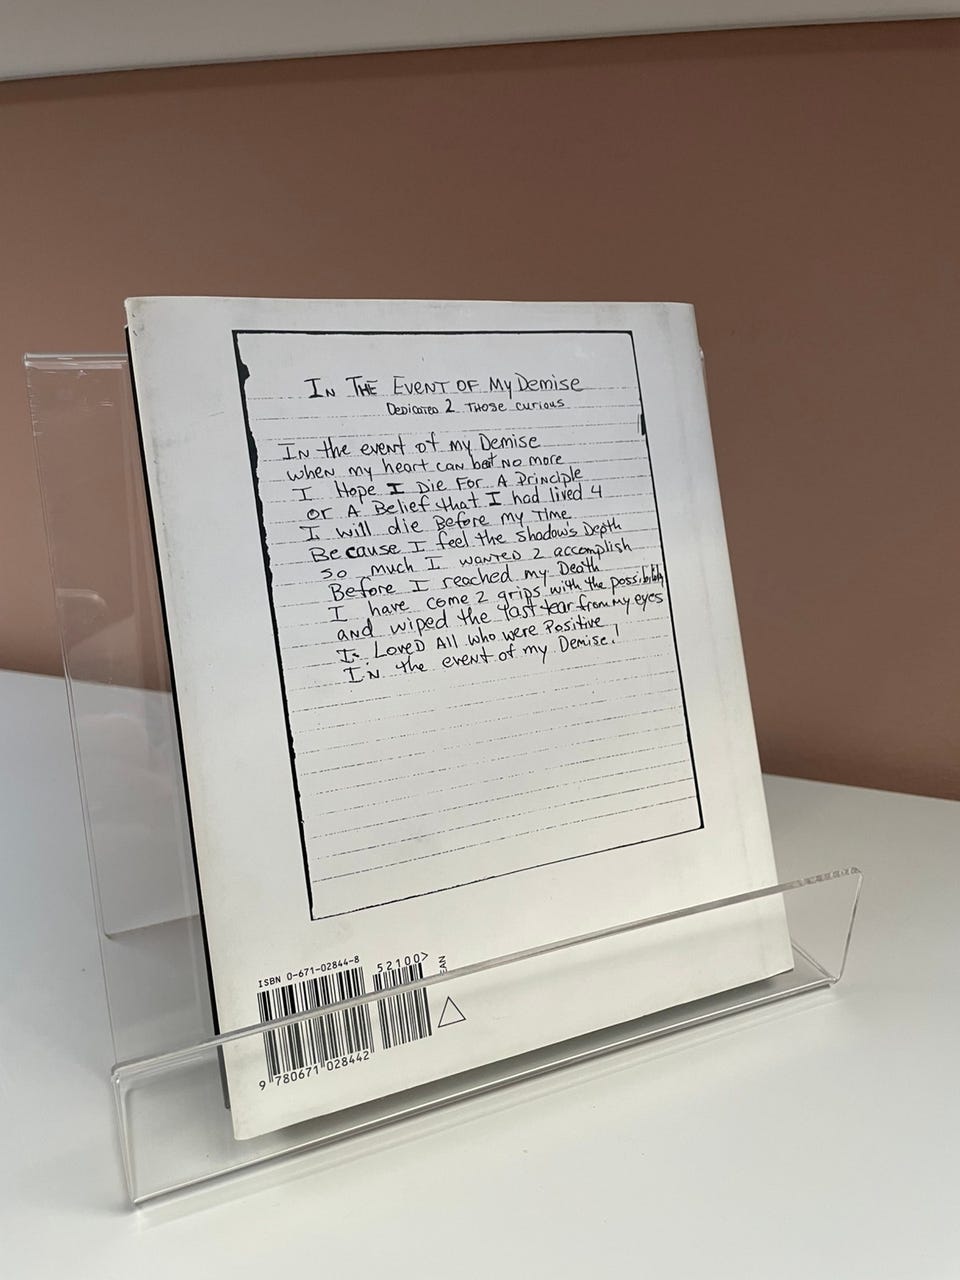 IN THE EVENT OF My Demise
Dedicated 2 THOSE curious
IN the event of my Demise
when my heart can beat NO more
I Hope I Die For A Principle
or A Belief that I had lived 4
I will die Before my Time
Because I feel the shadow's Depth
so much I wanted 2 accomplish
Before I reached my Death
I have come 2 grips with the possibility
and wiped the last tear from my eyes
I Loved All who were Positive
IN the event of my Demise!
ISBN 0-671-02844-8
52100>
EAN
9 780671 028442